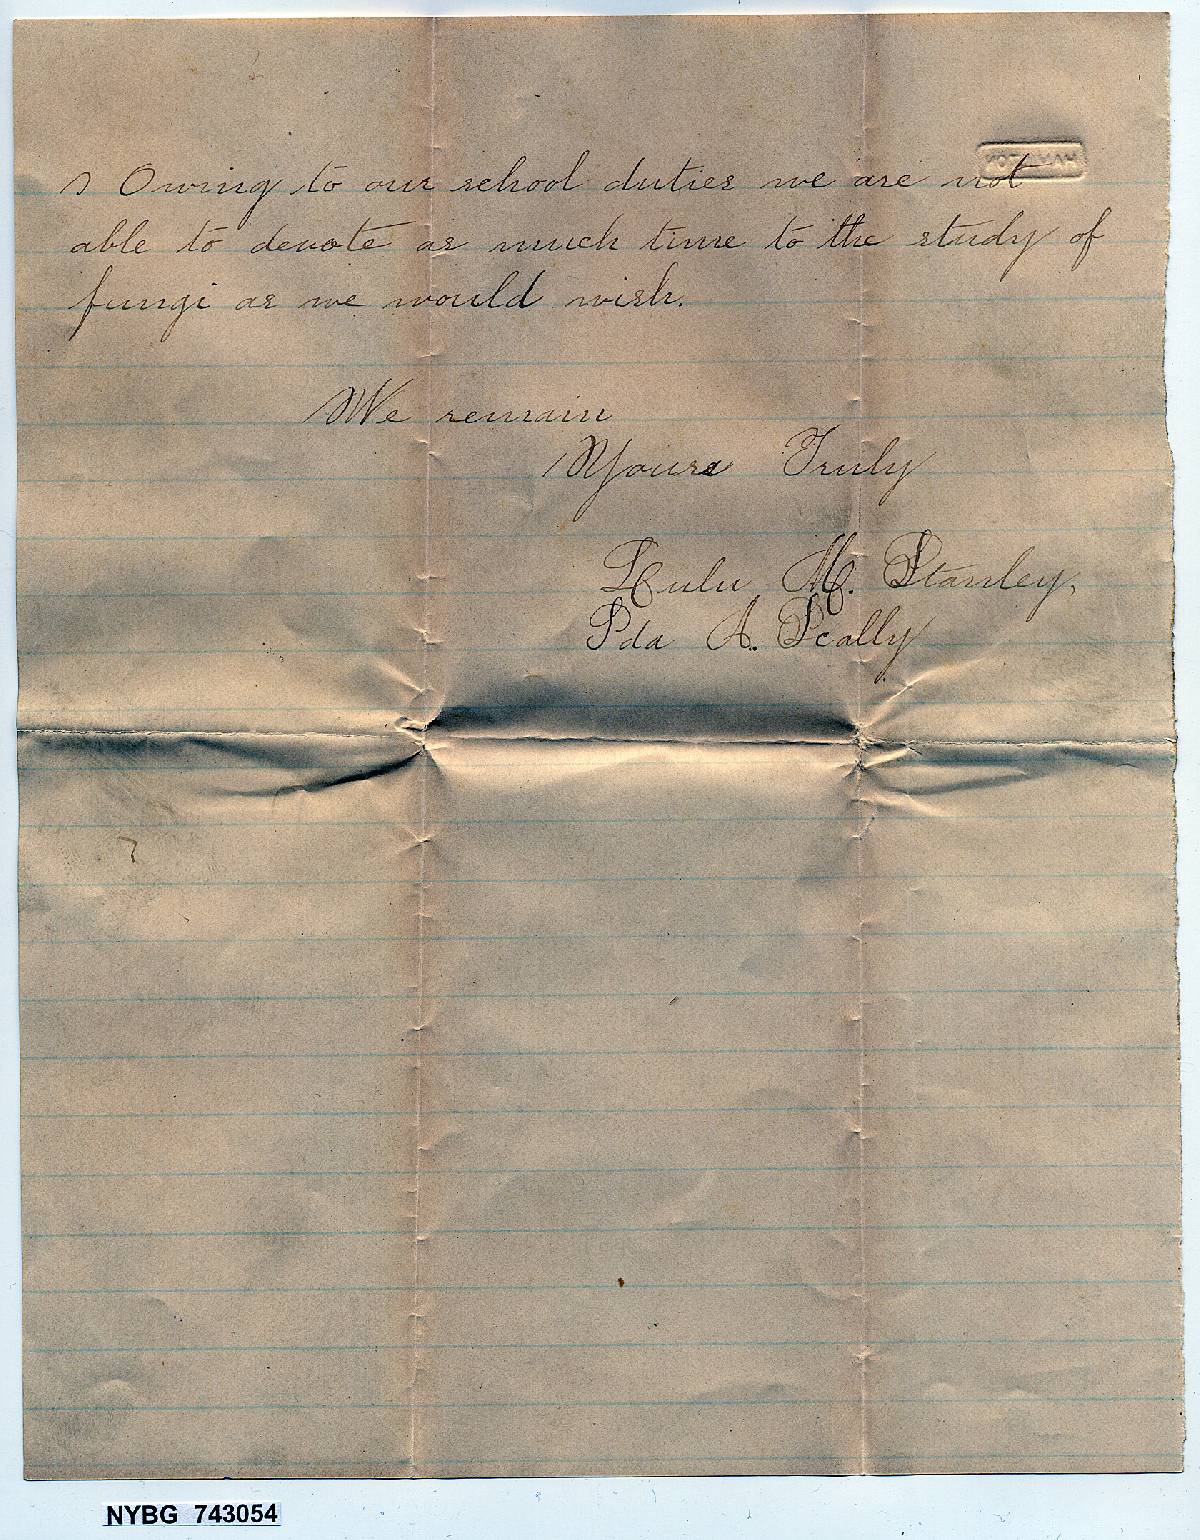 Owing to our school duties we are not
able to devote as much time to the study of
fungi as we would wish.
We remain
Yours Truly
Lulu M. Stanley,
Ida A. Scally
NYBG 743054